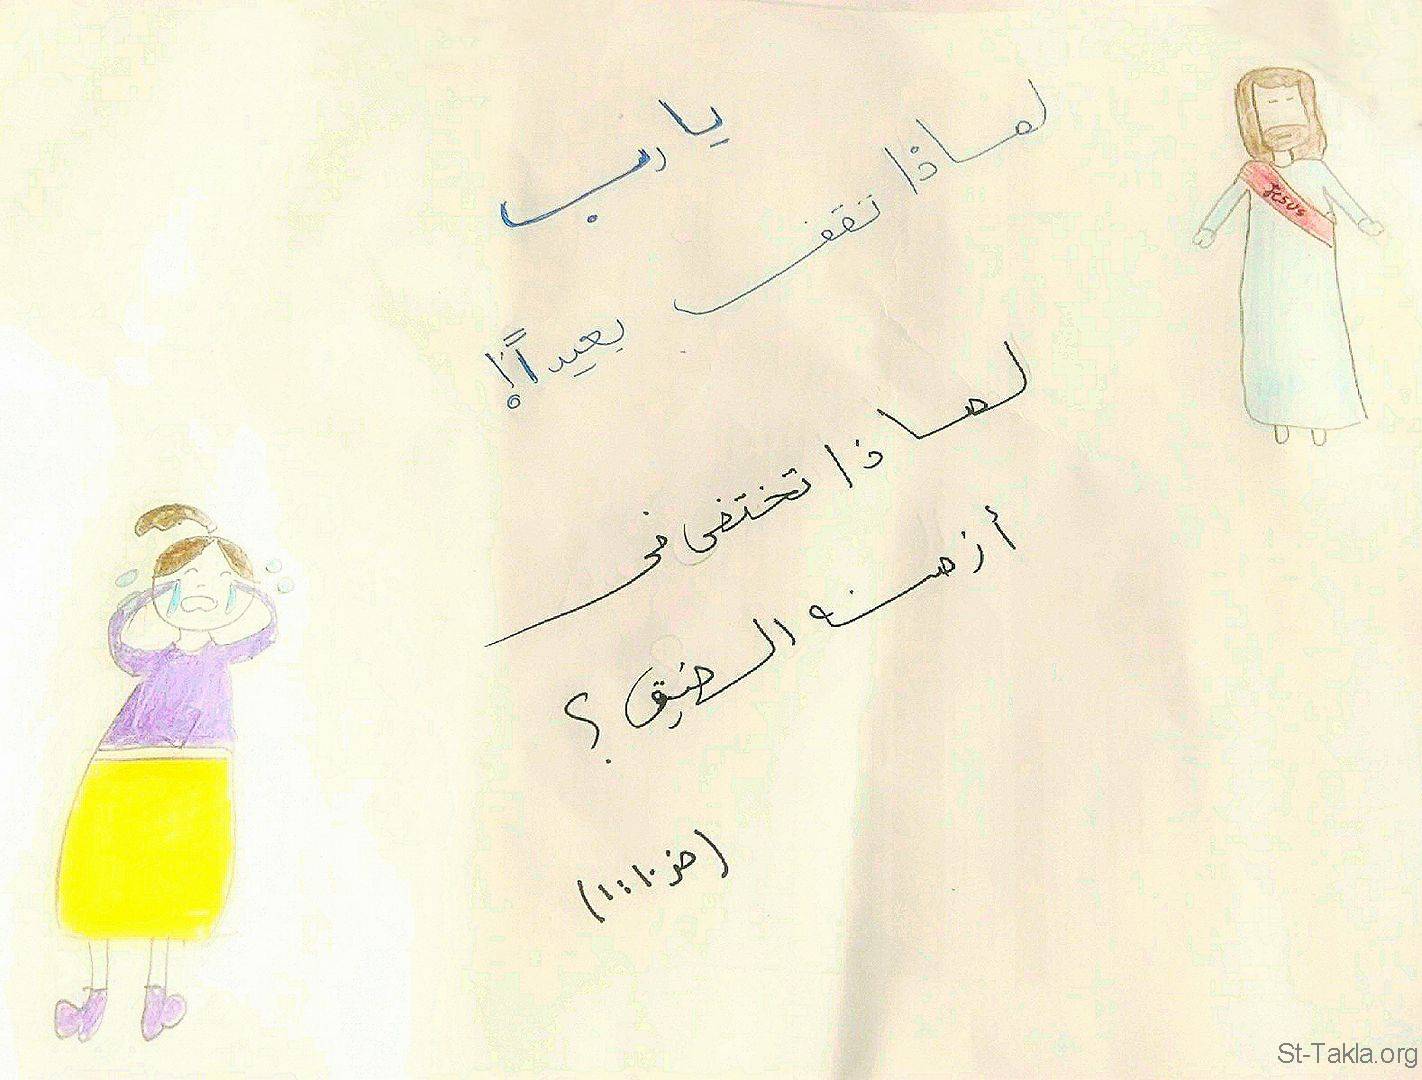 يا رب
لماذا تقف بعيداً!
لماذا تختفى فى
أزمنه الضيق ؟
(مز ١٠: ١)
Jesus
St-Takla.org